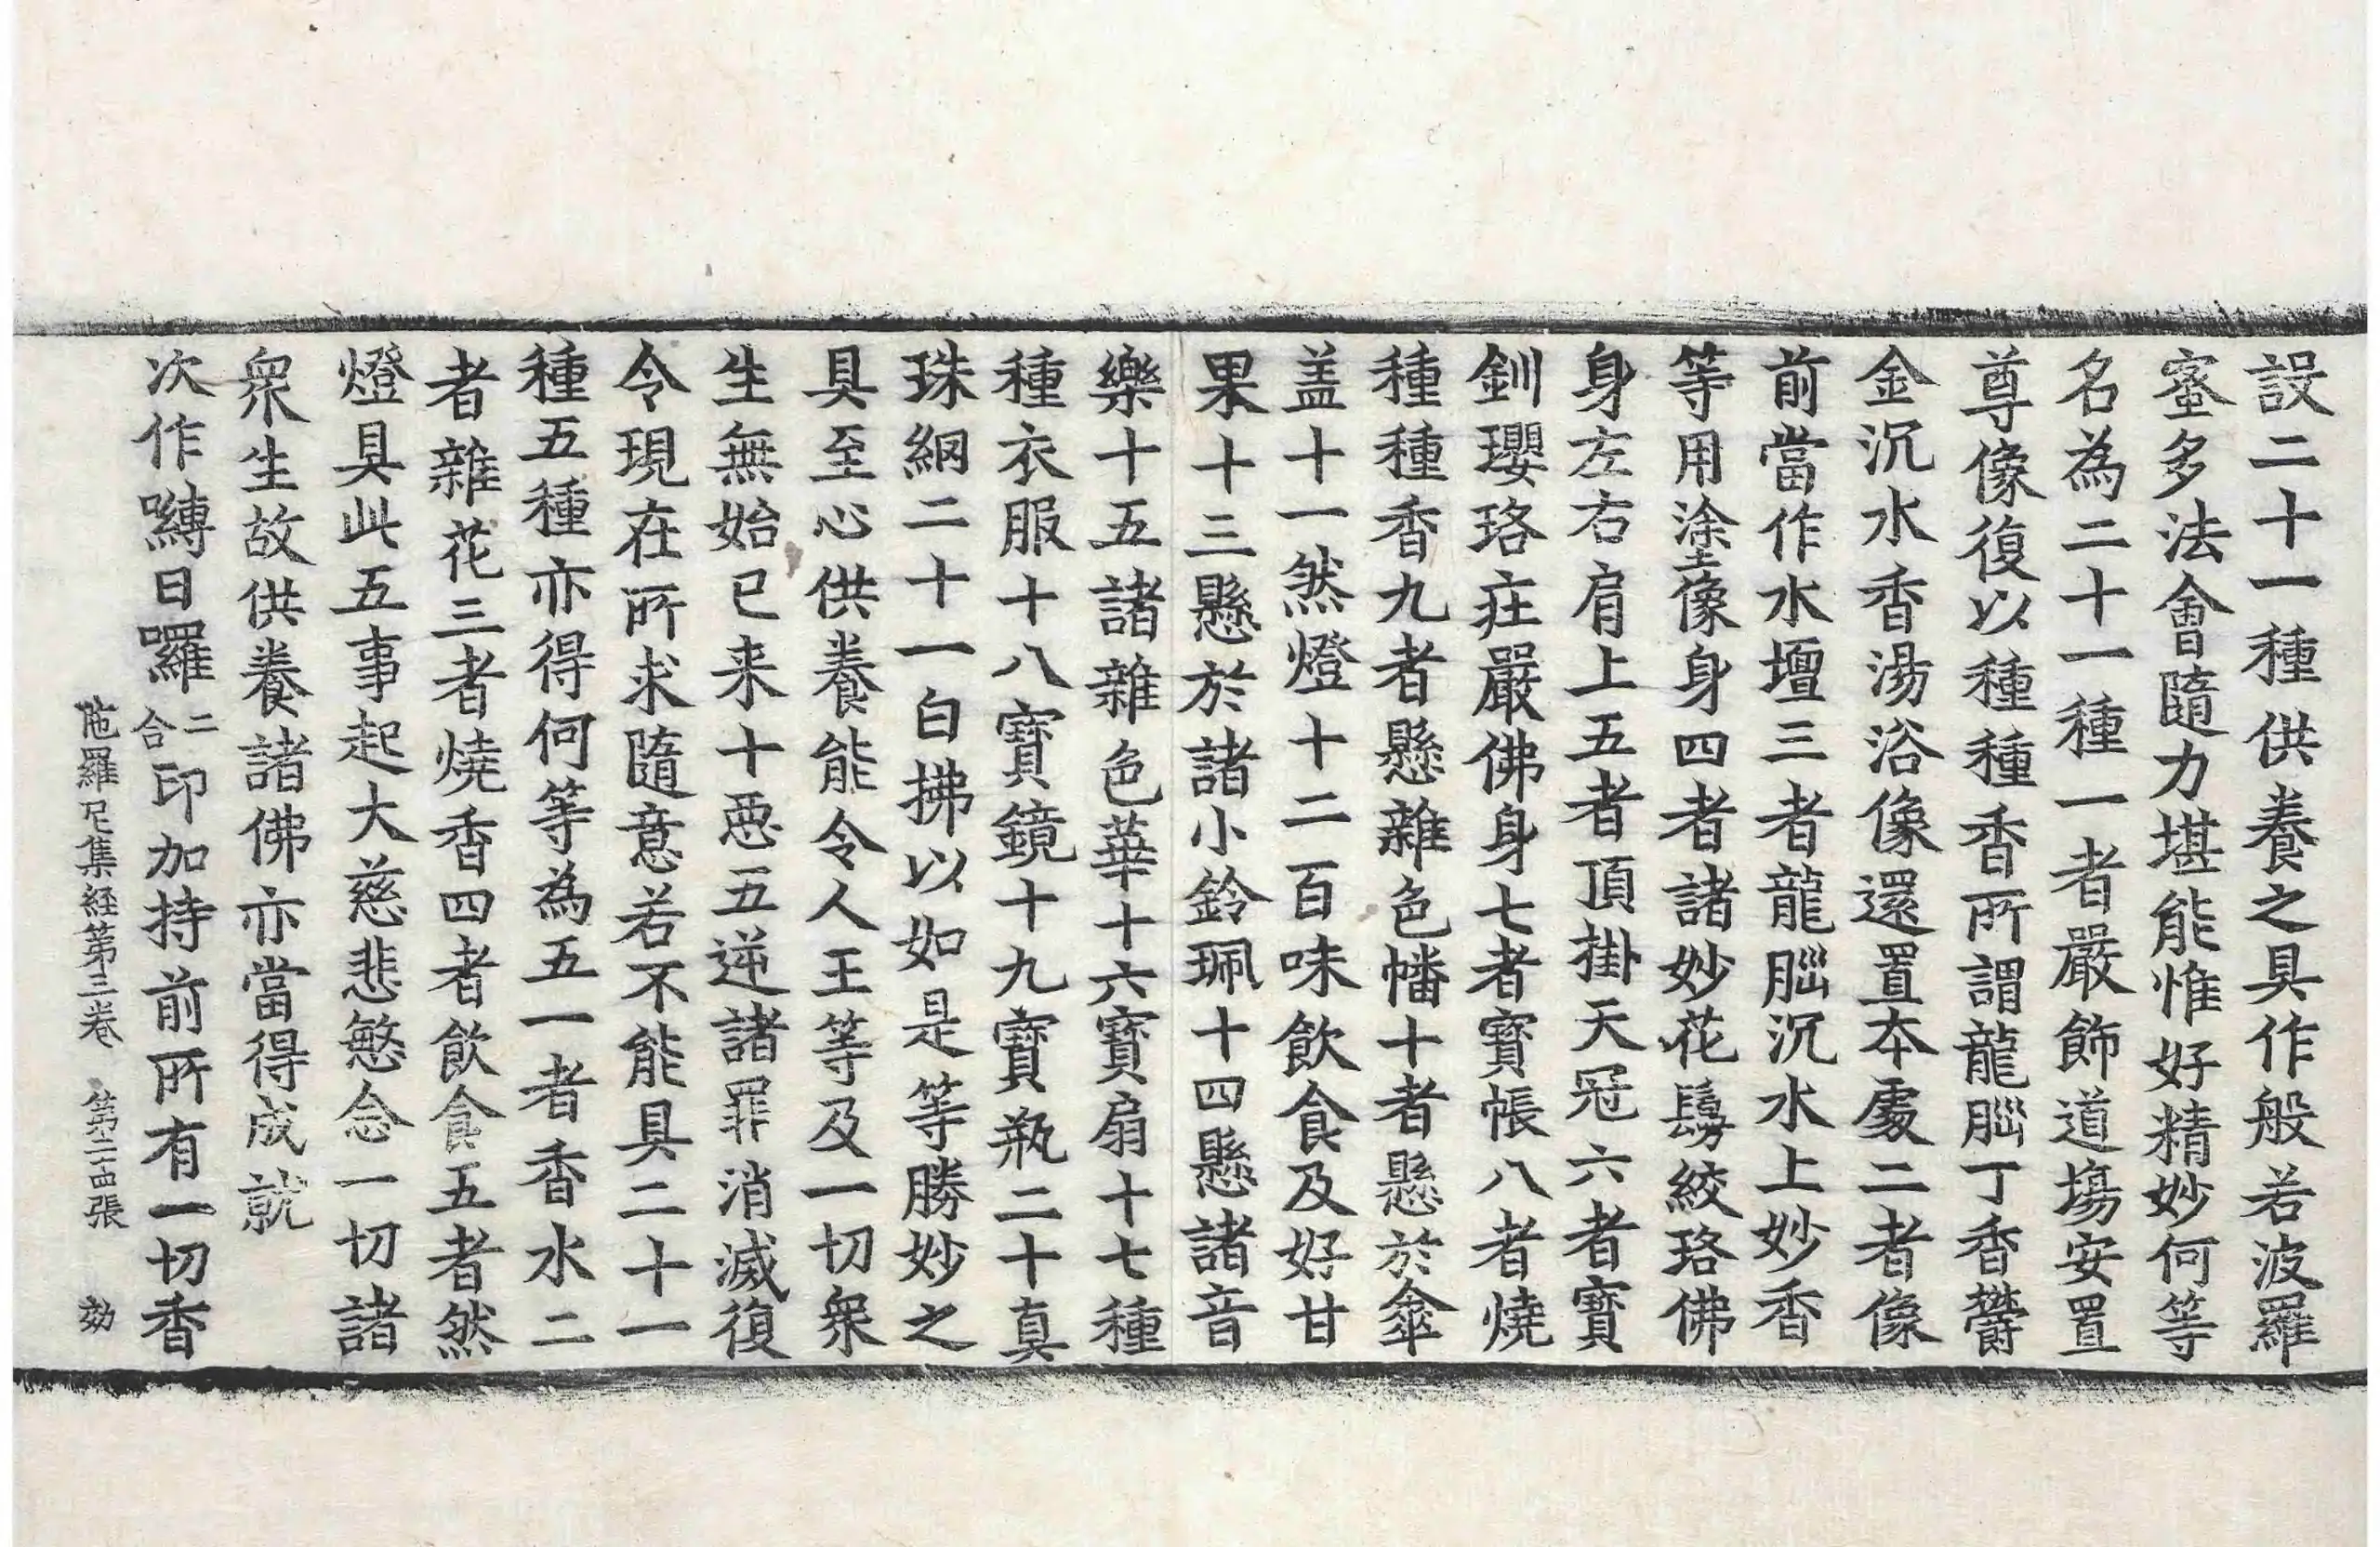 設二十一種供養之具作般若波羅
蜜多法會隨力堪能惟好精妙何等
名為二十一種一者嚴飾道場安置
尊像復以種種香所謂龍腦丁香欝
金沉水香湯浴像還置本處二者像
前當作水壇三者龍腦沉水上妙香
等用塗像身四者諸妙花鬘絞珞佛
身左右肩上五者頂掛天冠六者寶
釧瓔珞莊嚴佛身七者寶帳八者燒
種種香九者懸雜色幡十者懸於傘
盖十一然燈十二百味飲食及好甘
果十三懸於諸小鈴珮十四懸諸音
樂十五諸雜色華十六寶扇十七種
種衣服十八寶鏡十九寶瓶二十真
珠網二十一白拂以如是等勝妙之
具至心供養能令人王等及一切衆
生無始已来十惡五逆諸罪消滅復
令現在所求隨意若不能具二十一
種五種亦得何等為五一者香水二
者雜花三者燒香四者飲食五者然
燈具此五事起大慈悲愍念一切諸
衆生故供養諸佛亦當得成就
次作嚩日囉二合印加持前所有一切香
陁羅尼集経第三卷　第二十四張　効